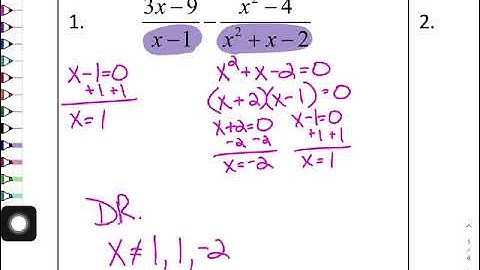 1. (3x-9)/(x-1) - (x²-4)/(x²+x-2)
2.
x-1=0
+1 +1
x=1
x²+x-2=0
(x+2)(x-1)=0
x+2=0
-2 -2
x=-2
x-1=0
+1 +1
x=1
D.R.
x≠1, 1, -2